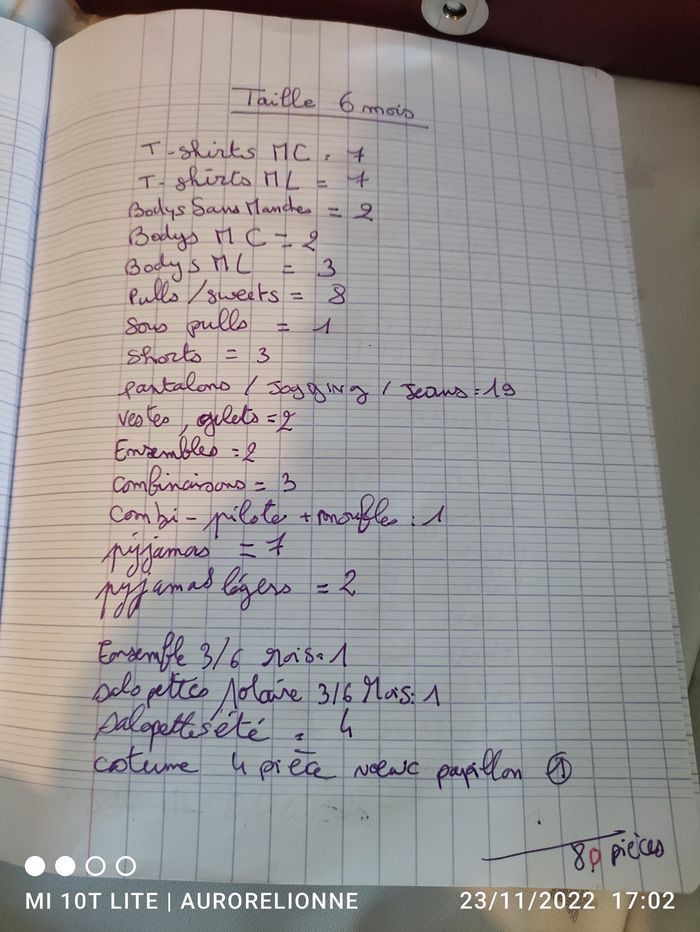 Taille 6 mois
T-shirts MC = 7
T-shirts ML = 7
Bodys Sans Manches = 2
Bodys MC = 2
Bodys ML = 3
Pulls / sweets = 8
Sous pulls = 1
Shorts = 3
pantalons / Jogging / Jeans = 19
vestes, gilets = 2
Ensembles = 2
combinaisons = 3
Combi-pilote + moufles : 1
pyjamas = 7
pyjamas légers = 2
Ensemble 3/6 Mois = 1
Salopettes polaire 3/6 Mois : 1
Salopettes été = 4
costume 4 pièce noeud papillon 1
80 pièces
MI 10T LITE | AURORELIONNE
23/11/2022 17:02